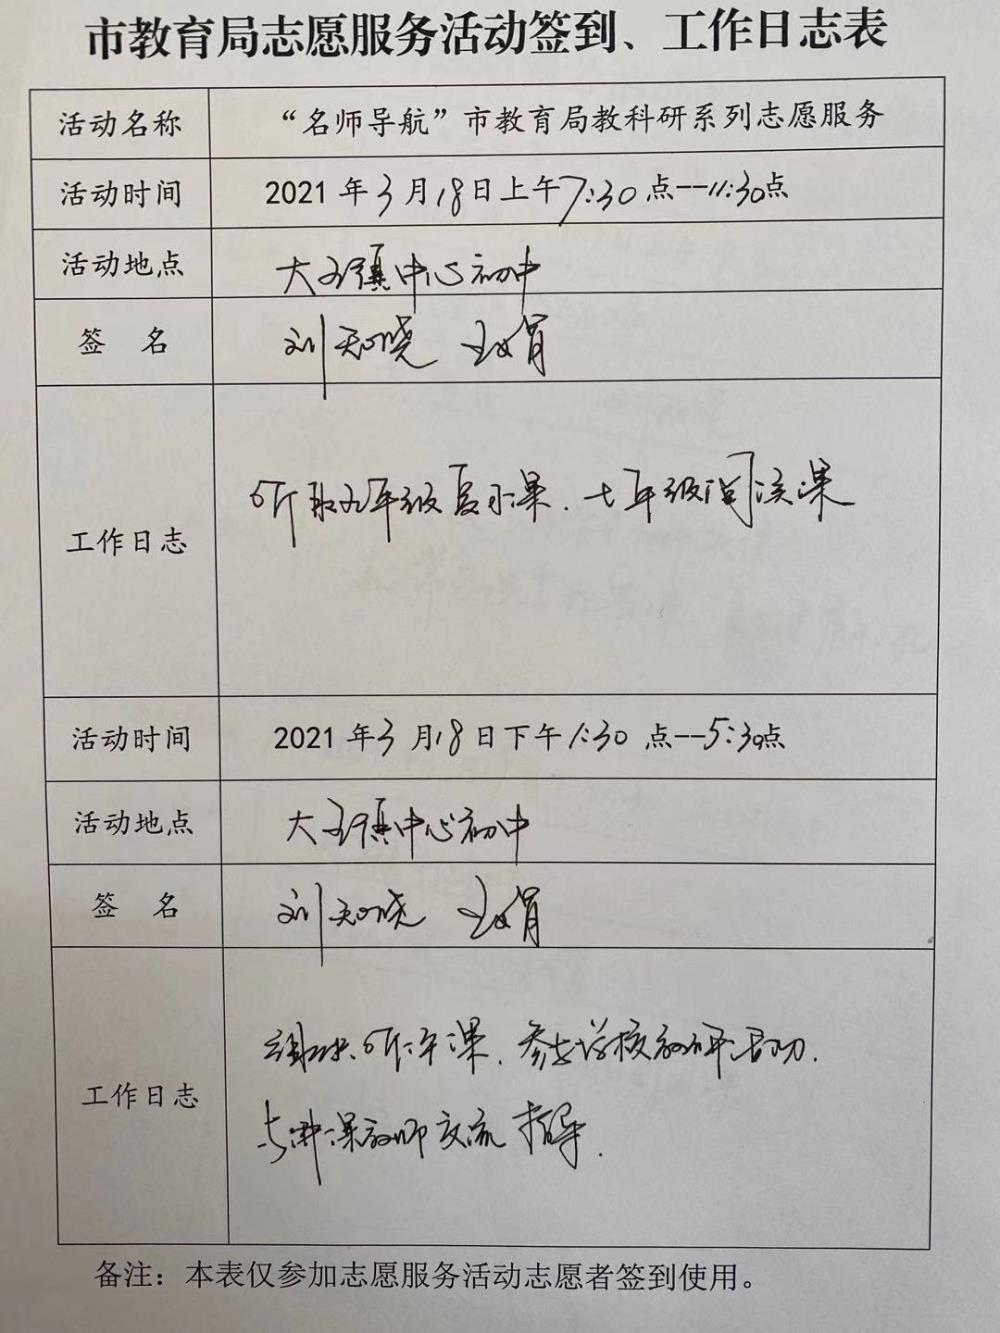 市教育局志愿服务活动签到、工作日志表
活动名称 “名师导航”市教育局教科研系列志愿服务
活动时间 2021年3月18日上午7:30点--11:30点
活动地点 大王镇中心初中
签 名 刘知晓 王娟
工作日志 听取九年级复习课、七年级阅读课
活动时间 2021年3月18日下午1:30点--5:30点
活动地点 大王镇中心初中
签 名 刘知晓 王娟
继续听评课、参与学校教研活动.
工作日志
与讲课教师交流指导.
备注：本表仅参加志愿服务活动志愿者签到使用。